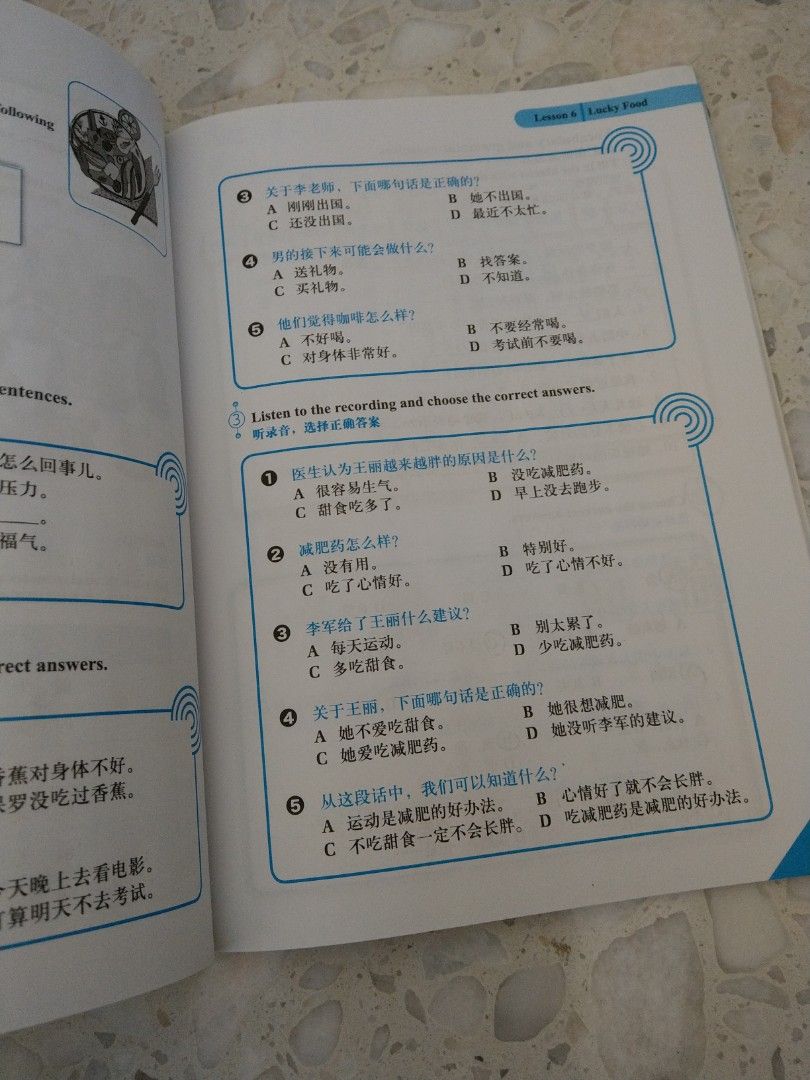 ollowing
entences.
怎么回事儿。
压力。
____。
福气。
rect answers.
香蕉对身体不好。
罗没吃过香蕉。
天晚上去看电影。
算明天不去考试。
Lesson 6 Lucky Food
❸ 关于李老师，下面哪句话是正确的？
A 刚刚出国。 B 她不出国。
C 还没出国。 D 最近不太忙。
❹ 男的接下来可能会做什么？
A 送礼物。 B 找答案。
C 买礼物。 D 不知道。
❺ 他们觉得咖啡怎么样？
A 不好喝。 B 不要经常喝。
C 对身体非常好。 D 考试前不要喝。
③ Listen to the recording and choose the correct answers.
听录音，选择正确答案
❶ 医生认为王丽越来越胖的原因是什么？
A 很容易生气。 B 没吃减肥药。
C 甜食吃多了。 D 早上没去跑步。
❷ 减肥药怎么样？
A 没有用。 B 特别好。
C 吃了心情好。 D 吃了心情不好。
❸ 李军给了王丽什么建议？
A 每天运动。 B 别太累了。
C 多吃甜食。 D 少吃减肥药。
❹ 关于王丽，下面哪句话是正确的？
A 她不爱吃甜食。 B 她很想减肥。
C 她爱吃减肥药。 D 她没听李军的建议。
❺ 从这段话中，我们可以知道什么？
A 运动是减肥的好办法。 B 心情好了就不会长胖。
C 不吃甜食一定不会长胖。 D 吃减肥药是减肥的好办法。